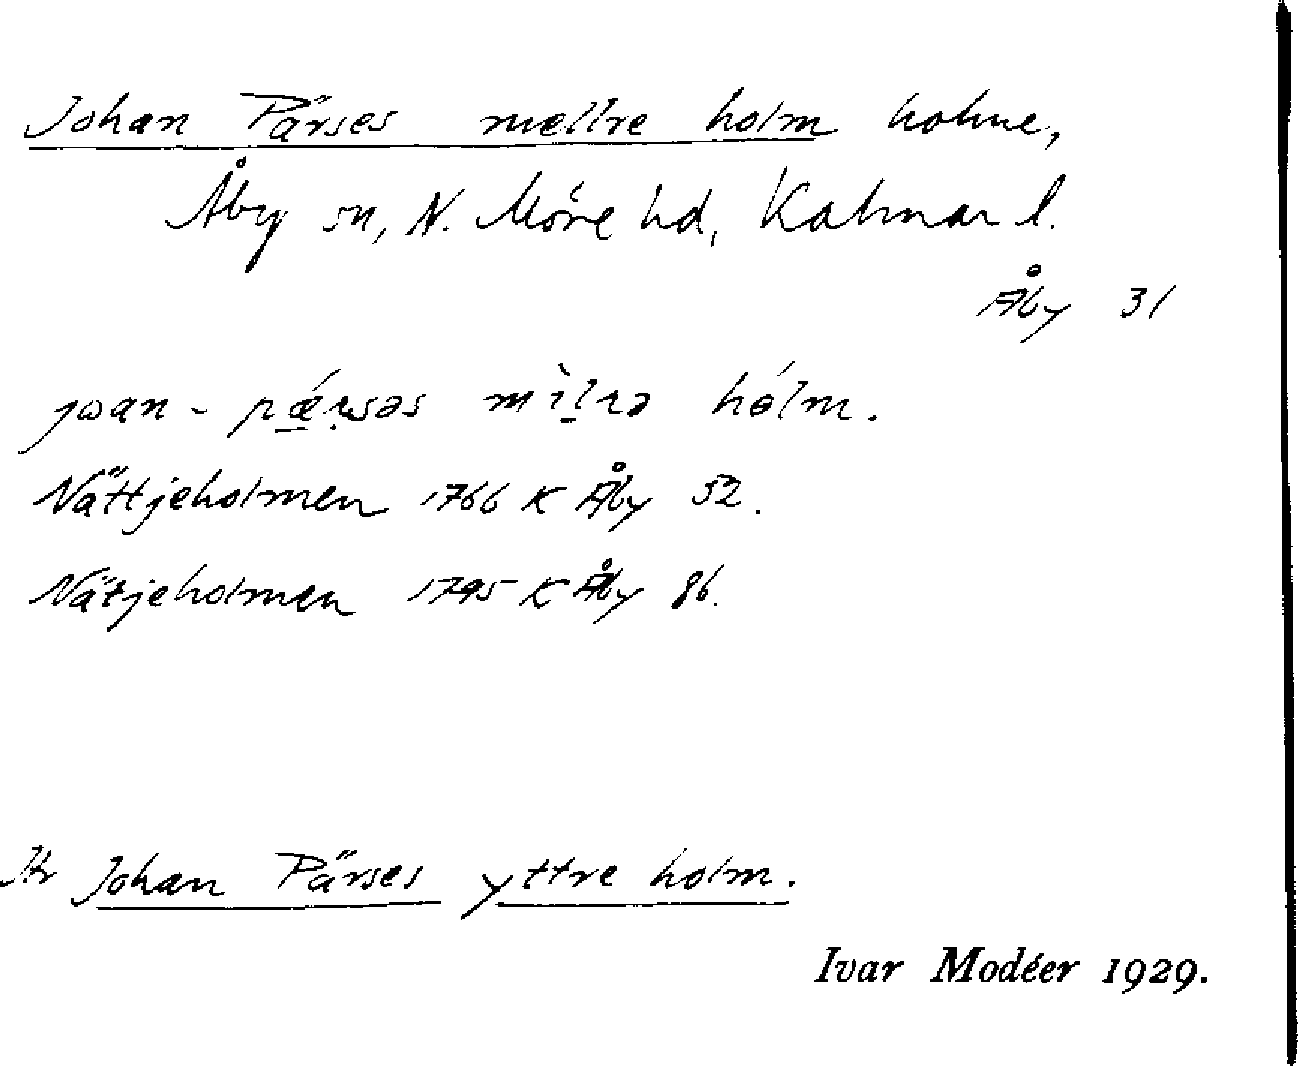 Johan Pärses mellre holm holme,
Åby sn, N. Möre hd, Kalmar l.
Åby 31
joan - pǽrsəs mìlrə hólm.
Nättjeholmen 1766 K Åby 52.
Nätjeholmen 1795 K Åby 86.
Jfr Johan Pärses yttre holm.
Ivar Modéer 1929.